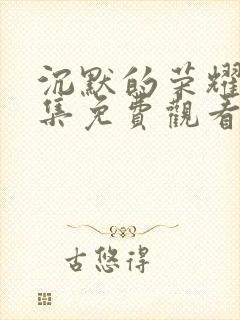 沉默的荣耀
集免費觀看
古悠得